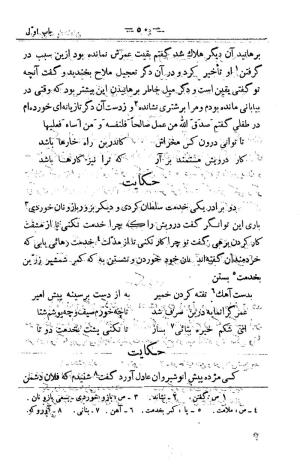 باب اوّل
برهانید آن دیگر هلاك شد گفتم بقیت عمرش نمانده بود ازین سبب در
گرفتن¹ او تأخیر کرد و در آن دگر تعجیل ملاح بخندید و گفت آنچه
تو گفتی یقین است و دیگر میل خاطر برهانیدن این بیشتر بود که وقتی در
بیابانی مانده بودم و مرا برشتری نشاند² و زدست آن دگر تازیانه‌ای خورده‌ام
در طفلی گفتم صدق الله من عمل صالحاً فلنفسه و من اساء فعلیها
تا توانی درون کس مخراش
کاندرین راه خارها باشد
کار درویش مستمند بر آر
که ترا نیز کارها باشد
حکایت
دو برادر یکی خدمت سلطان کردی و دیگر بزور بازو نان خوردی³
باری این توانگر گفت درویش را که چرا خدمت نکنی تا از مشقت
کار کردن برهی گفت تو چرا کار نکنی تا از مذلت⁴ خدمت رهائی یابی که
خردمندان گفته‌اند نان خود خوردن و نشستن به که کمر شمشیر زرین
خدمت⁵ بستن
بدست آهك⁶ تفته کردن خمیر
به از دست برسینه پیش امیر
عمر گرانمایه درین صرف شد
تا چه خورم صیف و چه پوشم شتا
ای شکم خیره بنانی⁷ بساز
تا نکنی پشت بخدمت دو تا
حکایت
کسی مژده پیش انوشیروان عادل آورد گفت⁸ شنیدم که فلان دشمن